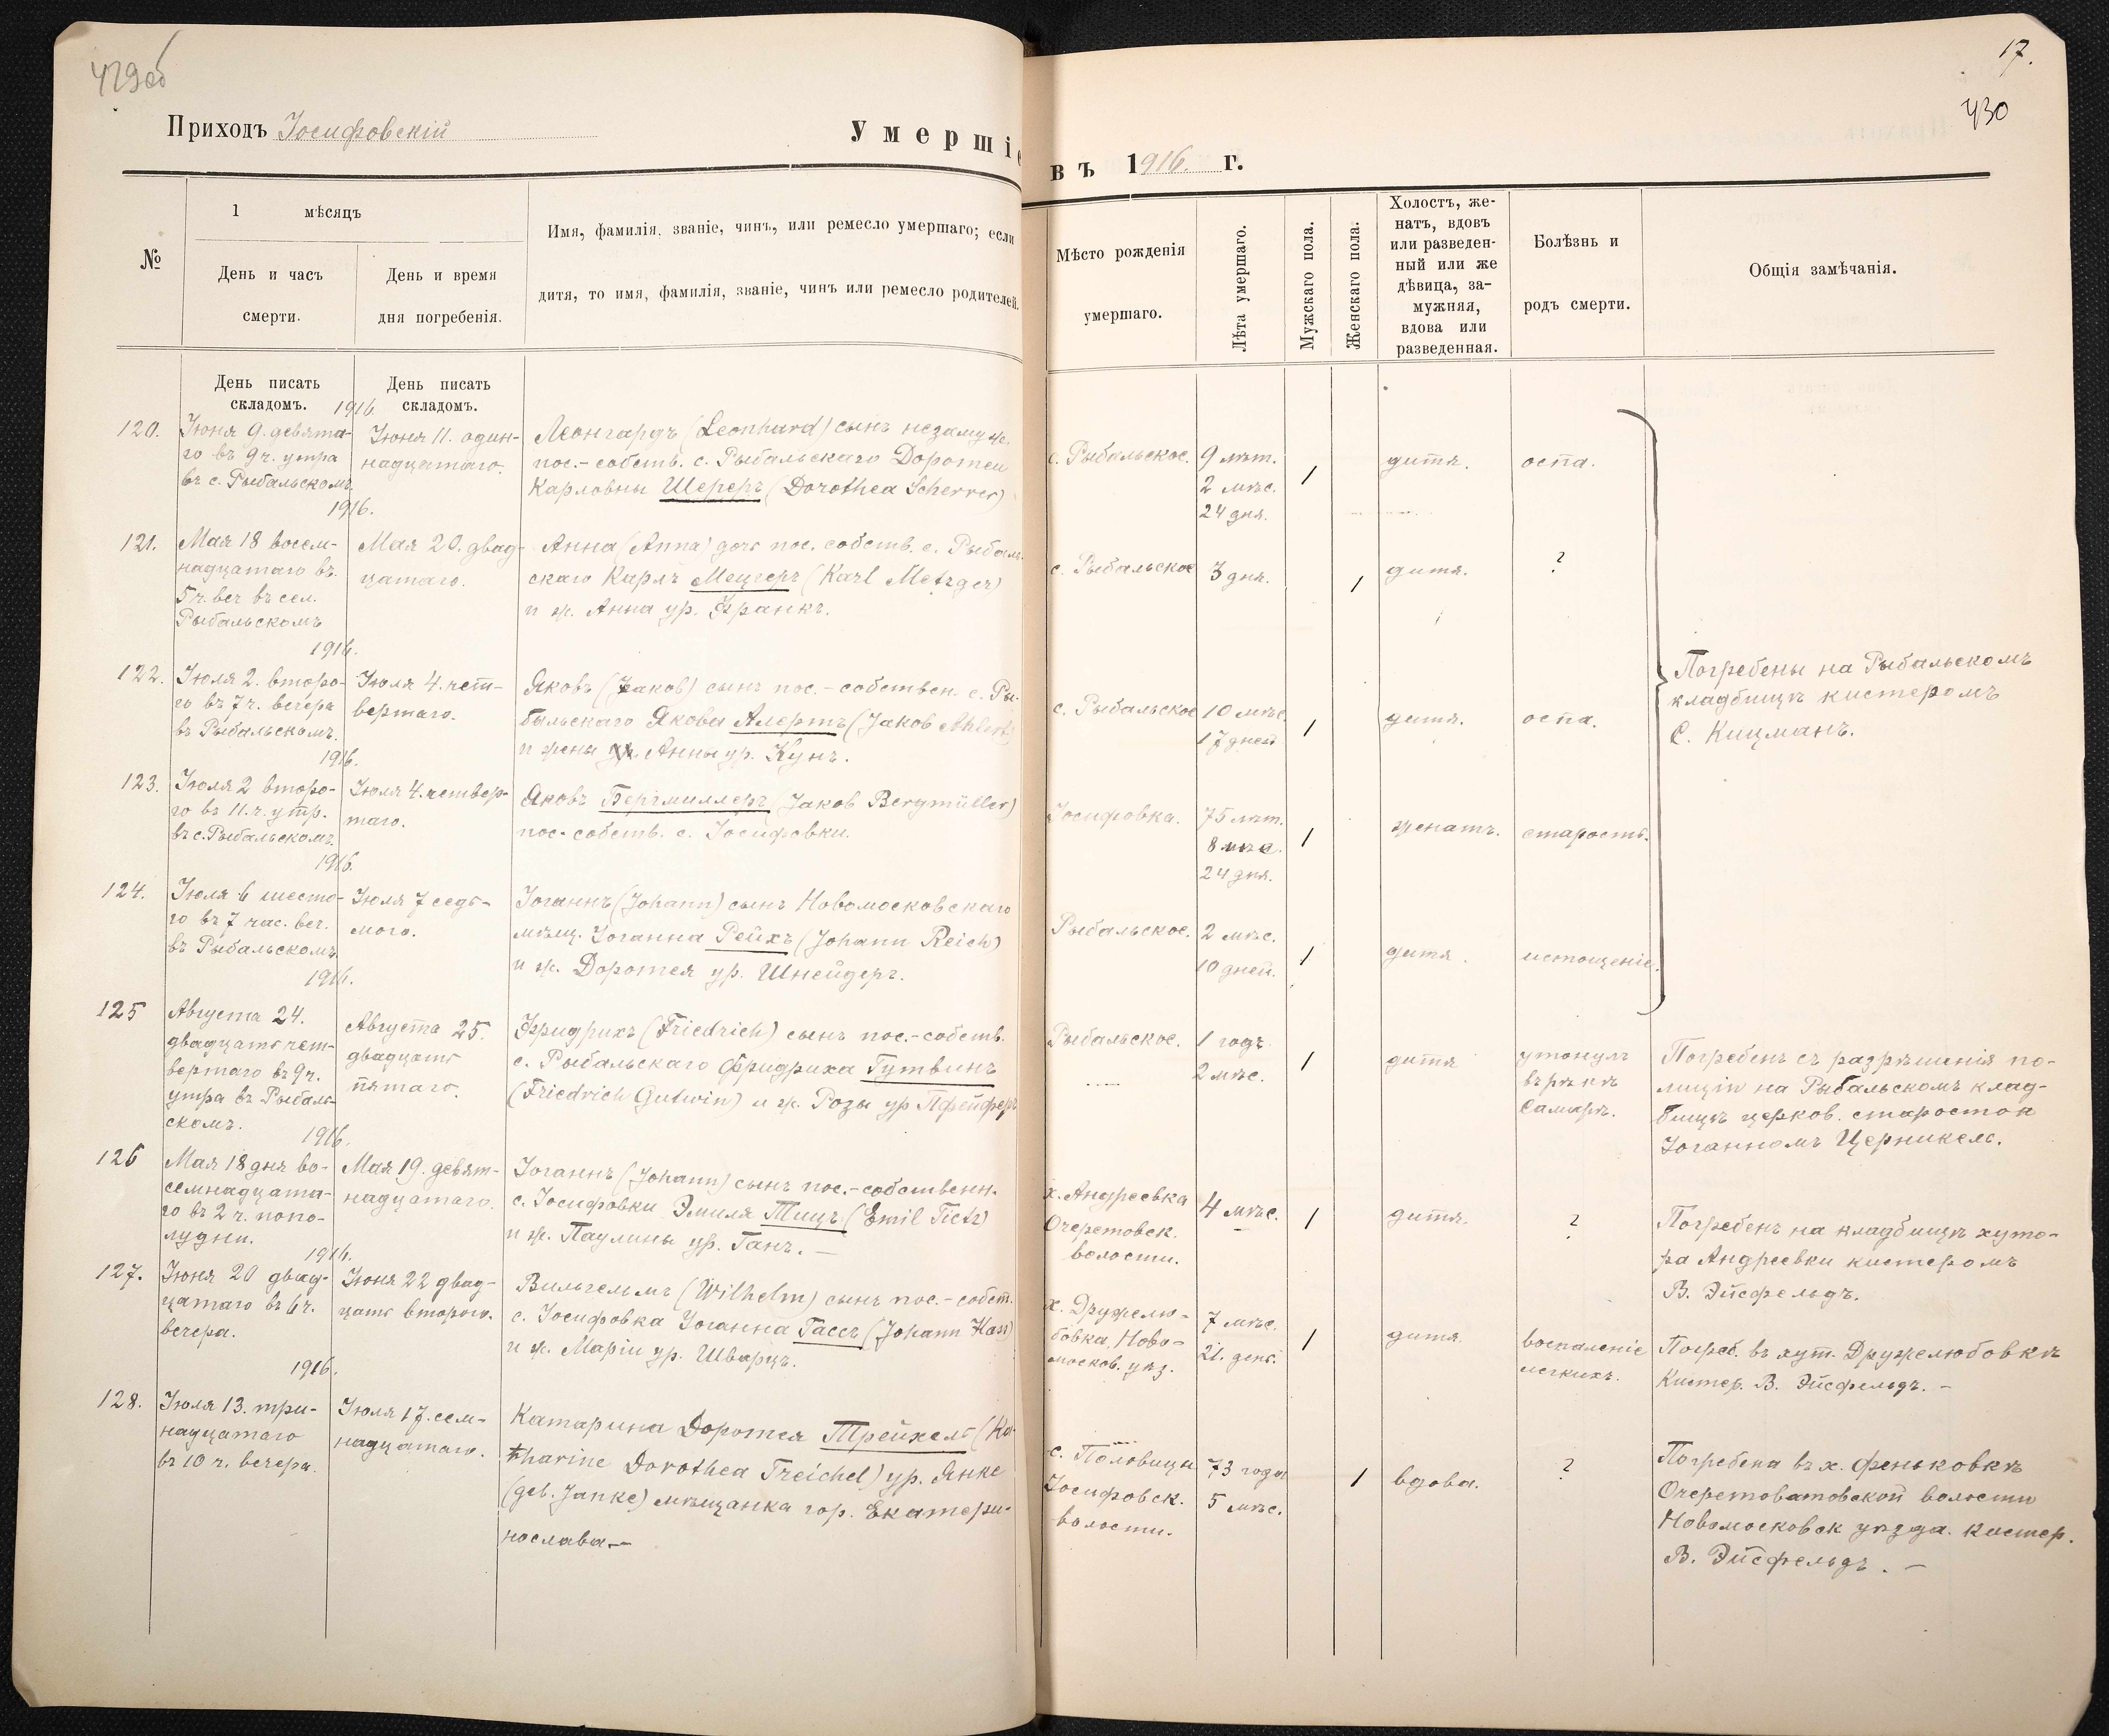 429об
Приходъ Іосифовскій
Умершіе
17.
430
въ 1916. г.
№
1 мѣсяцъ
День и часъ
смерти.
День и время
дня погребенія.
Имя, фамилія, званіе, чинъ, или ремесло умершаго; если
дитя, то имя, фамилія, званіе, чинъ или ремесло родителей.
Мѣсто рожденія
умершаго.
Лѣта умершаго.
Мужскаго пола.
Женскаго пола.
Холостъ, же-
натъ, вдовъ
или разведен-
ный или же
дѣвица, за-
мужняя,
вдова или
разведенная.
Болѣзнь и
родъ смерти.
Общія замѣчанія.
День писать
складомъ.
День писать
складомъ.
1916
120.
Іюня 9. девята-
го въ 9 ч. утра
въ с. Рыбальскомъ.
Іюня 11. один-
надцатаго.
Леонгардъ (Leonhard) сынъ незамуж.
пос.-собств. с. Рыбальскаго Доротеи
Карловны Шереръ (Dorothea Scherrer)
с. Рыбальское.
9 лѣт.
2 мѣс.
24 дня.
1
дитя.
оспа.
1916.
121.
Мая 18 восем-
надцатаго въ
5 ч. веч въ сел.
Рыбальскомъ
Мая 20. двад-
цатаго.
Анна (Anna) дочь пос. собств. с. Рыбаль-
скаго Карлъ Мецгеръ (Karl Metzger)
и ж. Анна ур. Франкъ.
с. Рыбальское
3 дня.
1
дитя.
?
1916.
122.
Іюля 2. второ-
го въ 7 ч. вечера
въ Рыбальскомъ.
Іюля 4. чет-
вертаго.
Яковъ (Jакоb) сынъ пос.-собствен. с. Ры-
бальскаго Якова Алертъ (Jakob Ahlert)
и жены Анны ур. Кунъ.
с. Рыбальское
10 мѣс.
17 дней
1
дитя.
оспа.
1916.
123.
Іюля 2 второ-
го въ 11. ч. утр.
въ с. Рыбальскомъ.
Іюля 4. четвер-
таго.
Яковъ Бергмиллеръ (Jakob Bergmüller)
пос.-собств. с. Іосифовки.
Іосифовка.
75 лѣт.
8 мѣс.
24 дня.
1
женатъ.
старость.
1916.
124.
Іюля 6 шесто-
го въ 7 час. веч.
въ Рыбальскомъ
Іюля 7 седь-
мого.
Іоганнъ (Johann) сынъ Новомосковскаго
мѣщ. Іоганна Рейхъ (Johann Reich)
и ж. Доротея ур. Шнейдеръ.
Рыбальское.
2 мѣс.
10 дней.
1
дитя.
истощеніе.
Погребены на Рыбальскомъ
кладбищѣ кистеромъ
С. Кицманъ.
1916.
125
Августа 24.
двадцать чет-
вертаго въ 9 ч.
утра въ Рыбаль-
скомъ.
Августа 25.
двадцать
пятаго.
Фридрихъ (Friedrich) сынъ пос.-собств.
с. Рыбальскаго Фридриха Гутвинъ
(Friedrich Gutwin) и ж. Розы ур Пфейферъ
Рыбальское.
1 годъ
2 мѣс.
1
дитя
утонулъ
въ рѣкѣ
Самаръ.
Погребенъ съ разрѣшенія по-
лиціи на Рыбальскомъ клад-
бищѣ церков. старостой
Іоганномъ Церникель.
1916.
126
Мая 18 дня во-
семнадцата-
го въ 2 ч. попо-
лудни.
Мая 19. девят-
надцатаго.
Іоганнъ (Johann) сынъ пос.-собственн.
с. Іосифовки Эмиля Тицъ (Emil Tietz)
и ж. Паулины ур. Ганъ. —
х. Андреевка
Очеретовск.
волости.
4 мѣс.
1
дитя.
?
Погребенъ на кладбищѣ хуто-
ра Андреевки кистеромъ
В. Эйсфельдъ.
1916.
127.
Іюня 20 двад-
цатаго въ 6 ч.
вечера.
Іюня 22 двад-
цать второго.
Вильгельмъ (Wilhelm) сынъ пос.-собст.
с. Іосифовка Іоганна Гассъ (Johann Hass)
и ж. Маріи ур. Шварцъ.
х. Дружелю-
бовка, Ново-
москов. уѣз.
7 мѣс.
21. день.
1
дитя.
воспаленіе
легкихъ.
Погреб. въ хут. Дружелюбовкѣ
Кистер. В. Эйсфельдъ. —
1916.
128.
Іюля 13. три-
надцатаго
въ 10 ч. вечера.
Іюля 17. сем-
надцатаго.
Катарина Доротея Трейхель (Ka-
tharine Dorothea Treichel) ур. Янке
(geb. Janke) мѣщанка гор. Екатери-
нослава —
с. Половицы
Іосифовск.
волости.
73 года
5 мѣс.
1
вдова.
?
Погребена въ х. Феньковкѣ
Очеретоватовской волости
Новомосковск уѣзда. кистер.
В. Эйсфельдъ. —